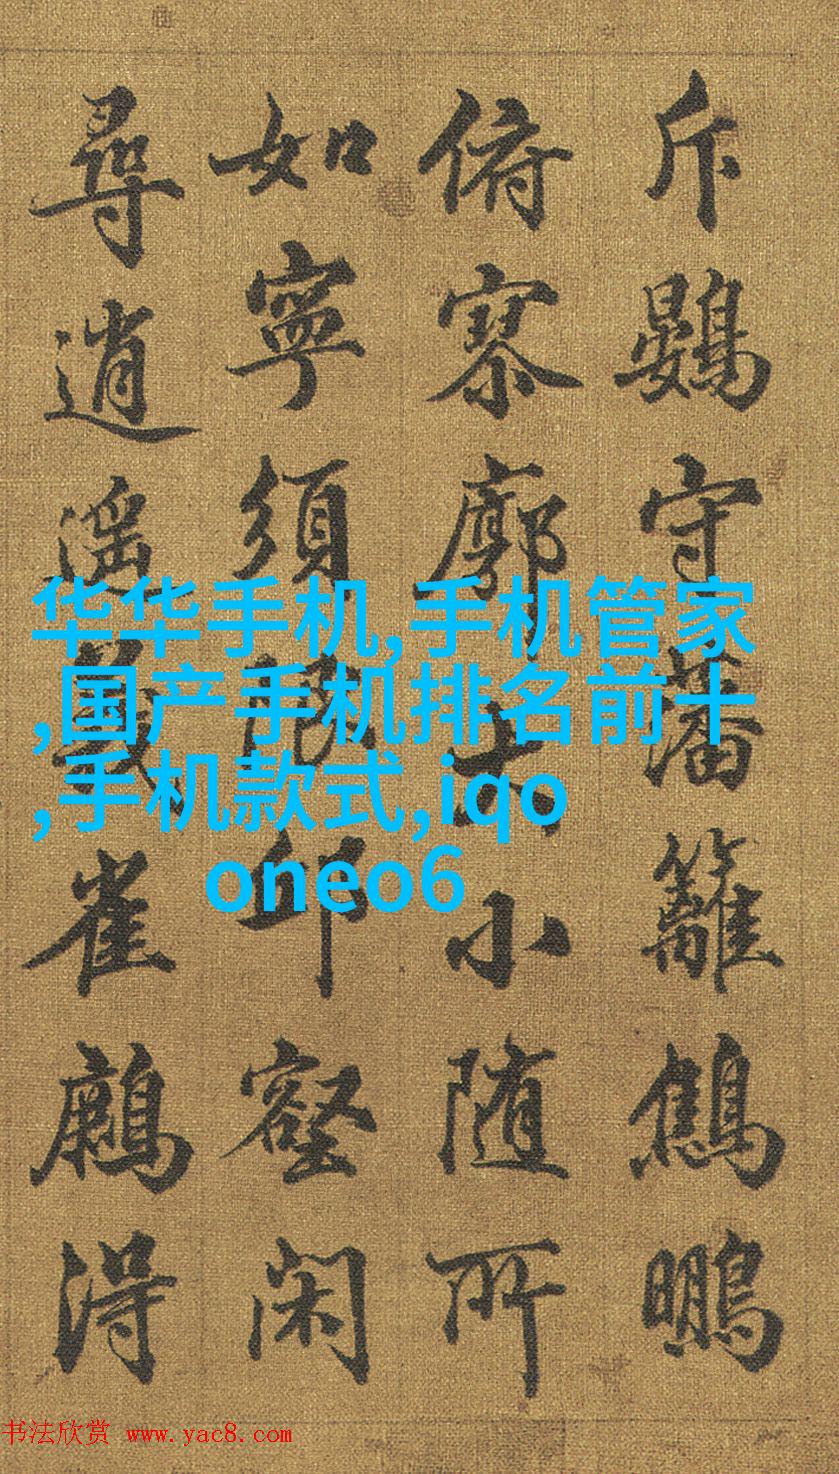 斥鷃守藩籬鷦䳟
俯寥廓大小随所
如寧須限邱壑閑
尋逍遥義雀得
华华手机,手机管家
,国产手机排名前十
,手机款式,iqo
oneo6
书法欣赏 www.yac8.com